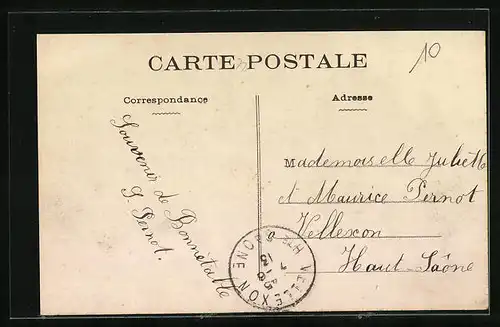 CARTE POSTALE
10
Correspondance
Adresse
Souvenir de Bonnétable
G. Pernot.
Mademoiselle Juliette
et Maurice Pernot
à Vellexon
Haute-Saône
VELLEXON